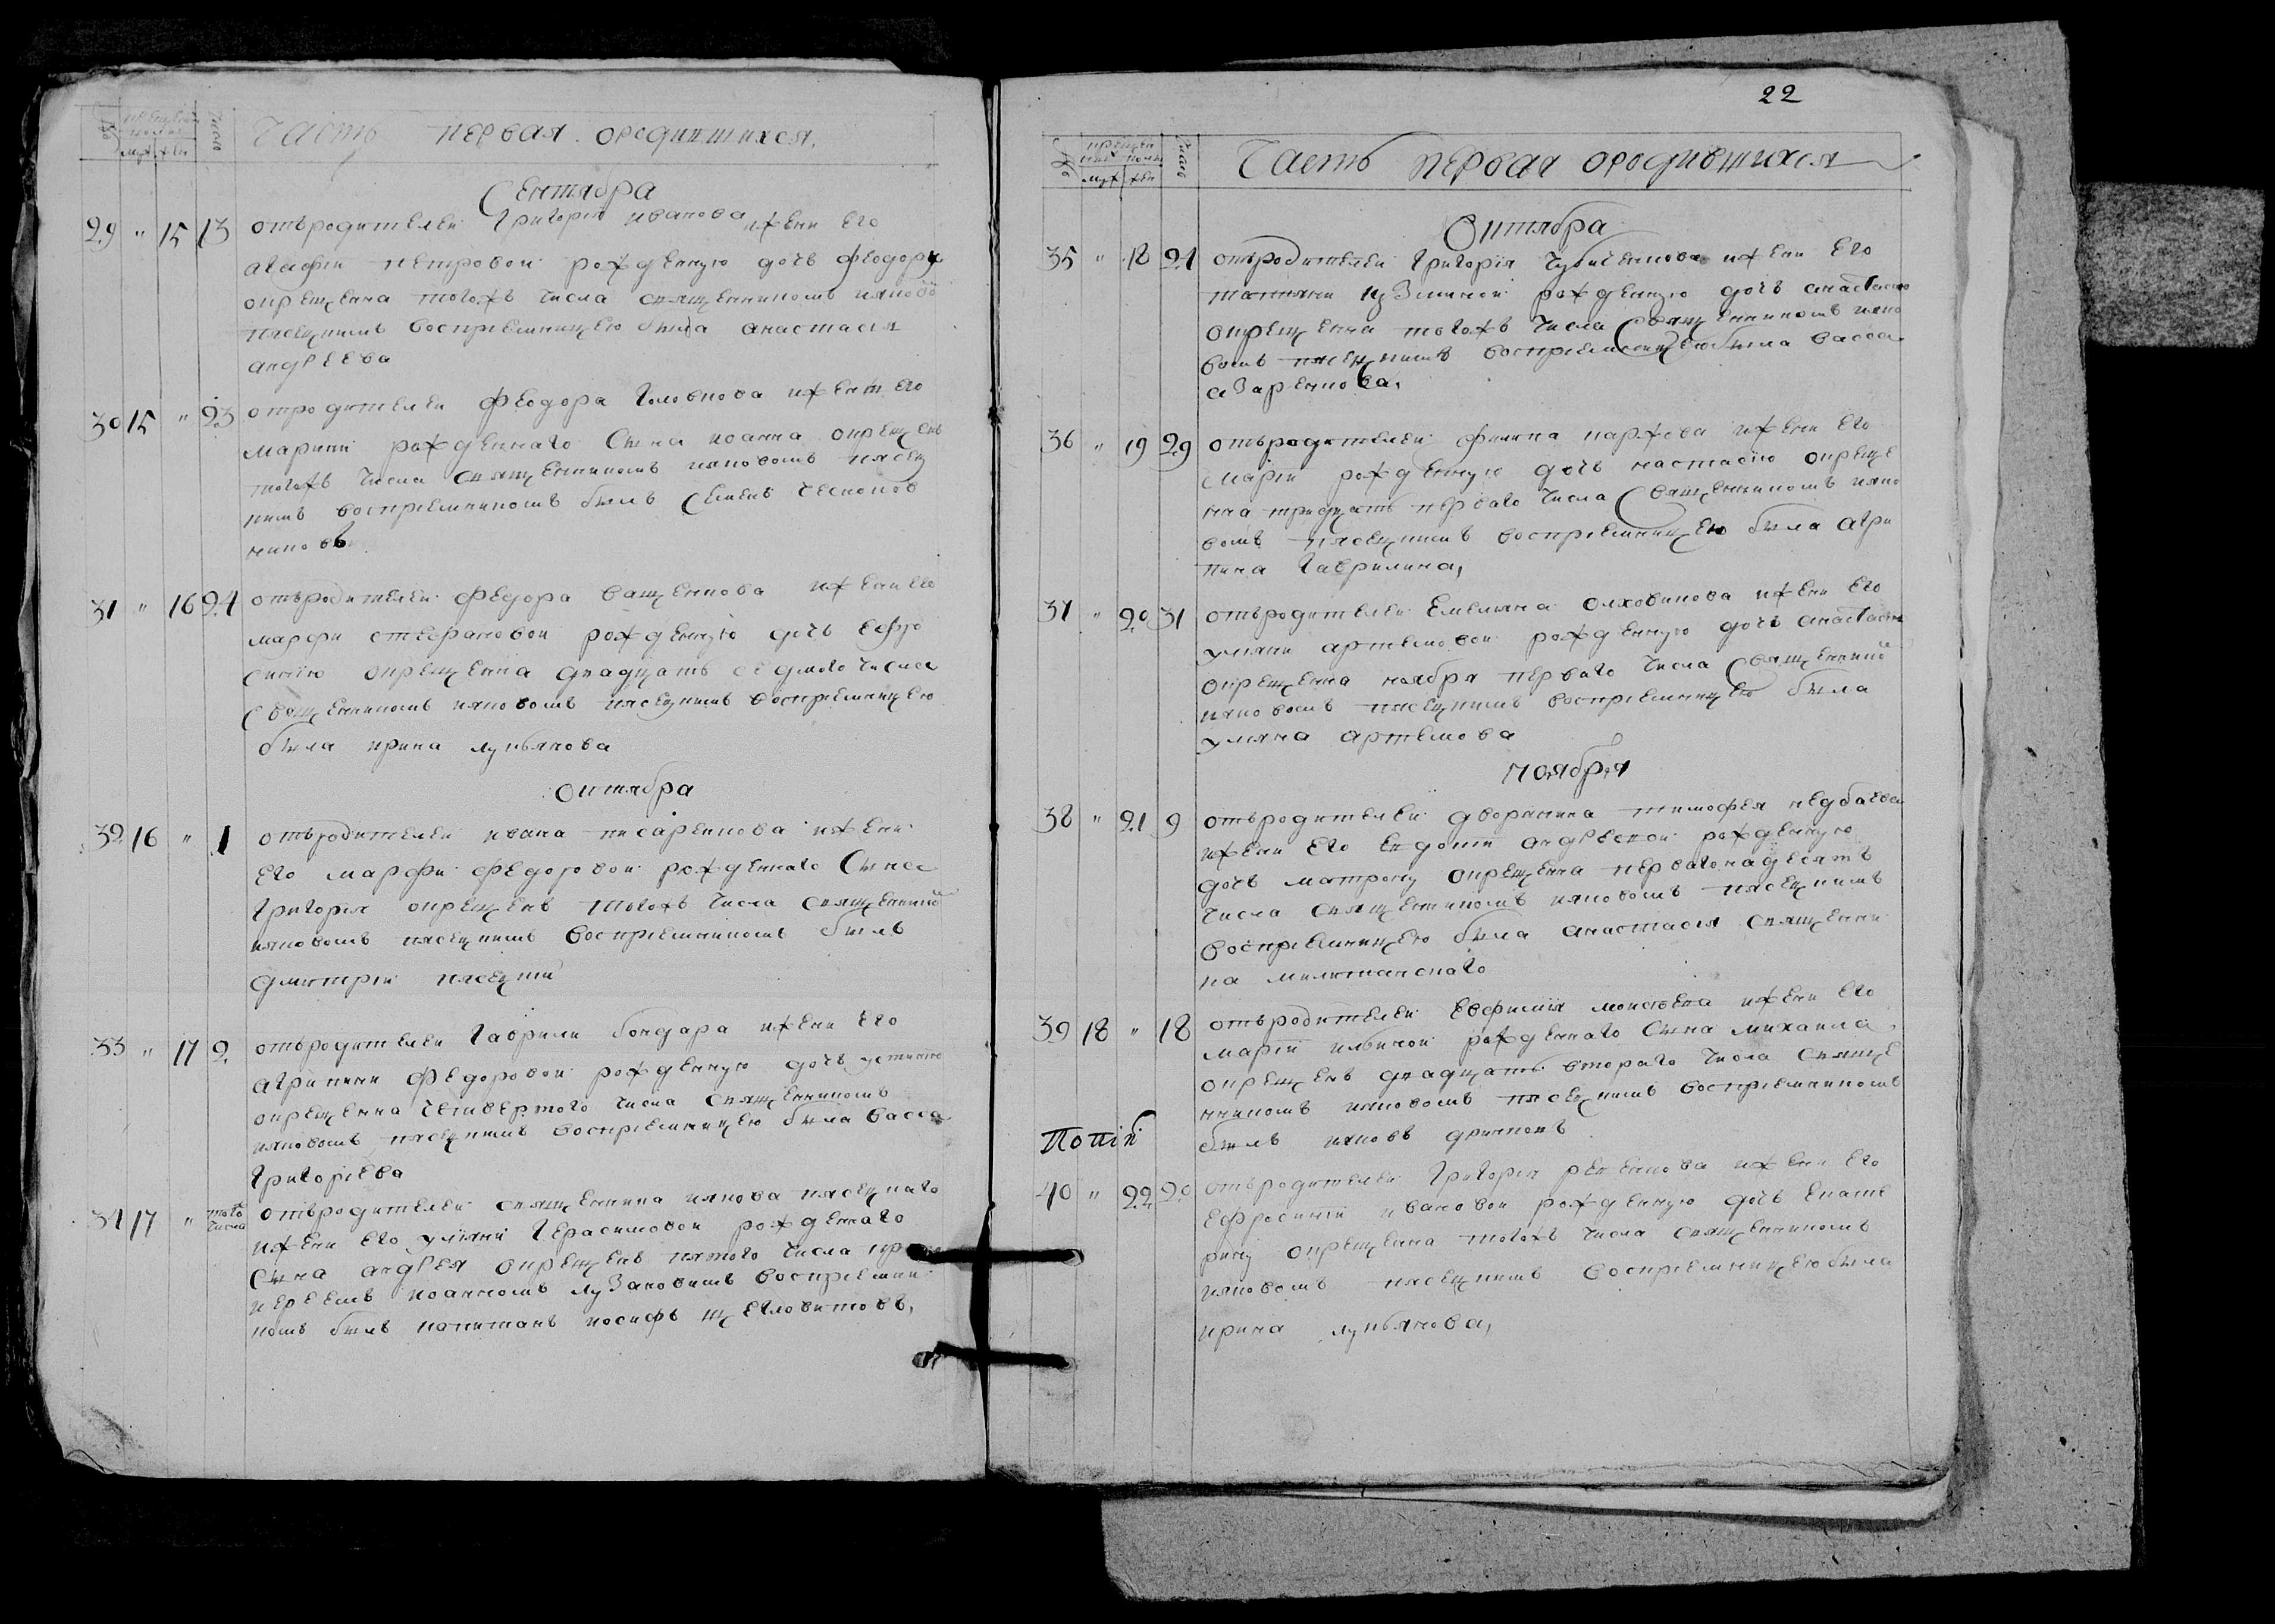 Часть первая ородившихся.
муж жен Число
Сентября
29 " 15 13 отъродителей Григорія иванова ижени его
агафіи петровой рожденную дочь феодору
окрещенна тогожъ числа священникомъ іяково
кясецкимъ воспріемницею была анастасія
андреева
30 15 " 23 отродителей феодора Головкова иженіи его
марини рожденнаго сина иоанна окрещенъ
тогожъ числа священникомъ іяковомъ кясец
кимъ воспріемникомъ былъ Семенъ
никовъ
31 " 16 24 отъродителей федора ващенкова ижени его
марфи стефановой рожденную дочь ефро
синію окрещенна двадцать седмого числа
священникомъ іяковомъ кясецкимъ воспріемницею
была ирина лукьянова
октября
32 16 " 1 отъродителей ивана писаренкова ижени
его марфи федоровой рожденнаго сина
григорія окрещенъ тогожъ числа священикой
іяковомъ кясецкимъ воспріемникомъ былъ
дмитрій кясецкій
33 " 17 2 отъродителей гаврили бондара ижени его
агрипини федоровой рожденную дочь устинію
окрещенна четвертого числа священникомъ
іяковомъ кясецкимъ воспріемницею была васса
григоріева
34 17 " того числа отъродителей священника іякова кясецкаго
ижени его уліяни герасимовой рожденнаго
сина андрея окрещенъ пятого числа
иереемъ иоанномъ лузановимъ воспріемни
комъ былъ капитанъ иосифъ щегловитовъ,
22
муж жен Число
Часть первая ородившихся
Октября
35 " 18 24 отъродителей григорія ижени его
татияни кузминой рожденную дочь анастасию
окрещенна тогожъ числа священникомъ іяко
вомъ кясецкимъ воспріемницею была васса
азаренкова,
36 " 19 29 отъродителей филипа ижени его
маріи рожденную дочь настасію окреще
нна тридцать первого числа священникомъ іяко
вомъ кясецкимъ воспріемницею была агри
пина гаврилина,
37 " 20 31 отъродителей емелияна олховикова ижени его
улияни артемовой рожденную дочь анастасию
окрещенна ноября первого числа священикой
іяковомъ кясецкимъ воспріемницею была
улияна артемова
ноября
38 " 21 9 отъродителей дворянина тимофея недбаева
ижени его евдокіи андреевой рожденную
дочь матрону окрещенна первагонадесять
числа священникомъ іяковомъ кясецкимъ
воспріемницею была анастасія священни
ка
39 18 " 18 отъродителей евфимія моисеева ижени его
маріи ильиной рожденнаго сина михаила
окрещенъ двадцать втораго числа свяще
нникомъ іяковомъ кясецкимъ воспріемникомъ
былъ іяковъ
40 " 22 20 отъродителей григорія ижени его
ефросиніи ивановой рожденную дочь екате
рину окрещенна тогожъ числа священникомъ
іяковомъ кясецкимъ воспріемницею была
ирина лукьянова,